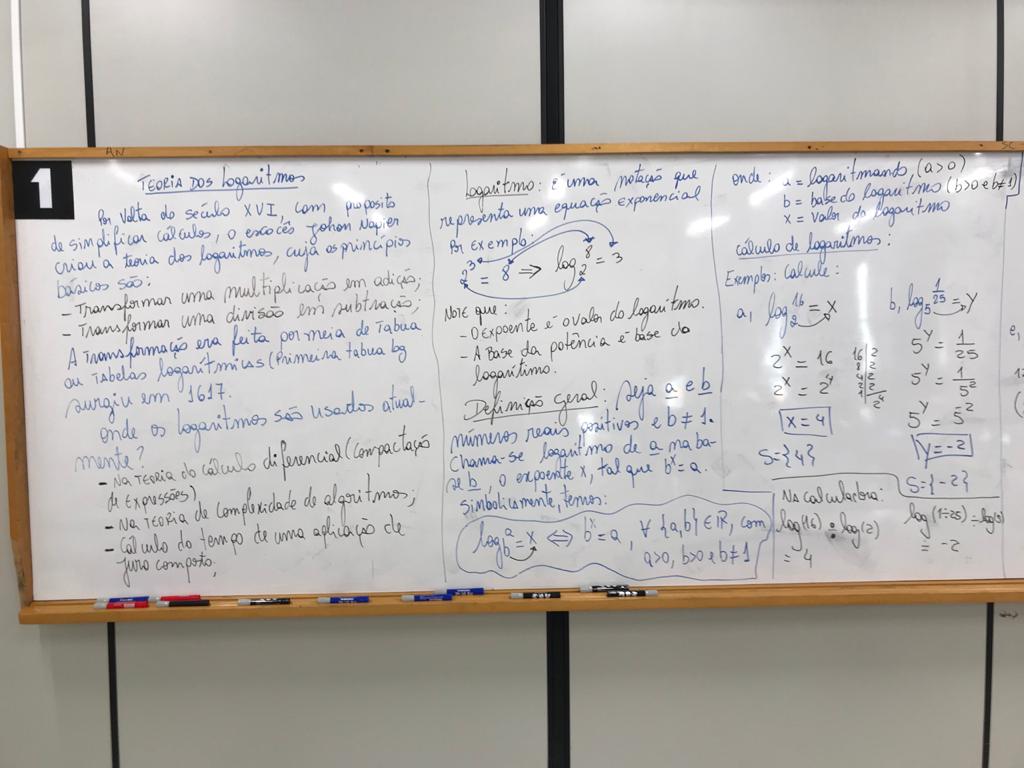 1
TEORIA DOS Logaritmos
Por volta do século XVI, com proposito
de simplificar cálculos, o escocês Johon Napier
criou a teoria dos logaritmos, cuja os princípios
básicos são:
- Transformar uma multiplicação em adição;
- Transformar uma divisão em subtração;
A Transformação era feita por meia de Tabua
ou Tabelas logarítmicas (Primeira tabua log
surgiu em 1617.
onde os logaritmos são usados atual-
mente?
- Na Teoria do cálculo diferencial (Compactação
de Expressões)
- Na Teoria de complexidade de algoritmos;
- Cálculo do tempo de uma aplicação de
juro composto;
Logaritmo: É uma notação que
representa uma equação exponencial
Por Exemplo:
2³ = 8 ⇒ log₂⁸ = 3
NOTE que:
- O Expoente é o valor do logaritmo.
- A Base da potência é base do
logaritimo.
Definição geral: Seja a e b
números reais positivos e b ≠ 1.
Chama-se logaritmo de a na ba-
se b, o expoente x, tal que bˣ = a.
Simbolicmente, temos:
log_b^a = x ⇔ bˣ = a, ∀ {a,b} ∈ ℝ, com
a>0, b>0 e b≠1
onde: a = logaritmando, (a>0)
b = base do logaritmo (b>0 e b≠1)
x = valor do logaritmo
cálculo de logaritmos:
Exemplos: calcule:
a, log₂¹⁶ = x
2ˣ = 16
2ˣ = 2⁴
16 | 2
8 | 2
4 | 2
2 | 2
1 | 2⁴
x = 4
S={4}
b, log₅^(1/25) = y
5ʸ = 1/25
5ʸ = 1/5²
5ʸ = 5²
y = -2
S={-2}
Na calculadora:
log(16) ÷ log(2)
= 4
log(1÷25) ÷ log(5)
= -2